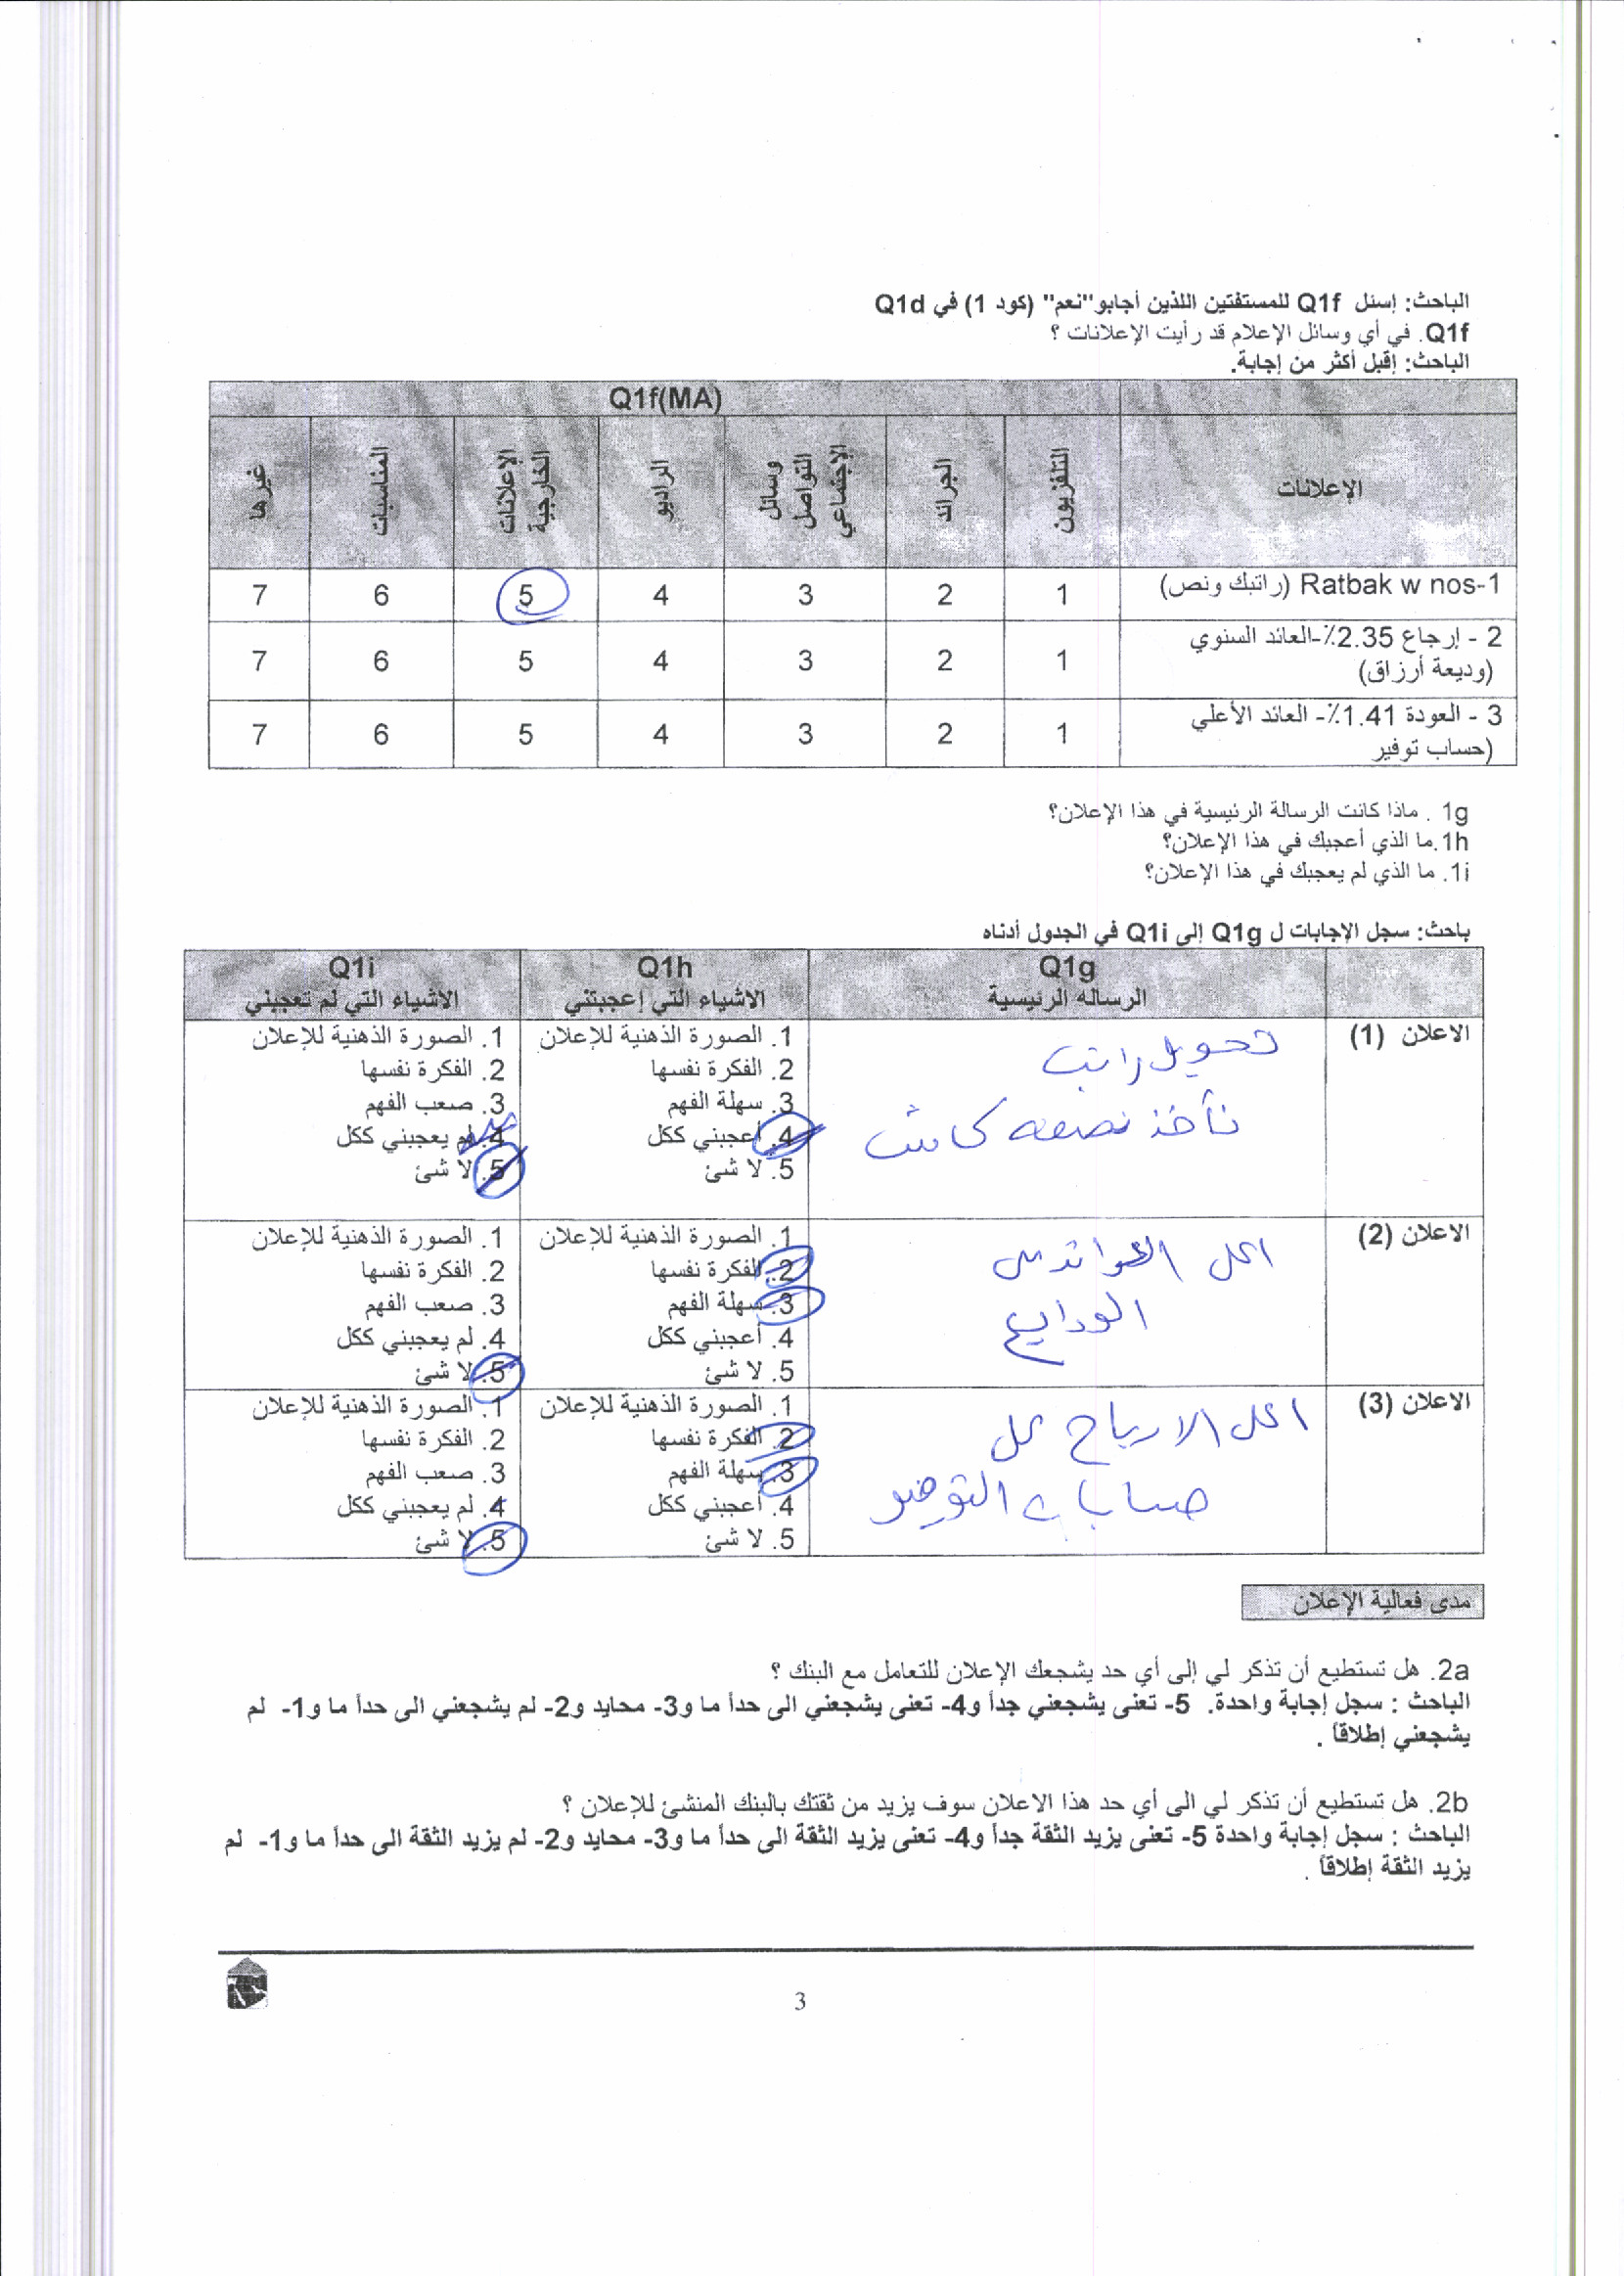 الباحث: إسئل Q1f للمستفتين اللذين أجابو"نعم" (كود 1) في Q1d
Q1f. في أي وسائل الإعلام قد رأيت الإعلانات ؟
الباحث: إقبل أكثر من إجابة.
Q1f(MA)
الإعلانات التلفزيون الجرائد وسائل التواصل الإجتماعي الراديو الإعلانات الخارجية المناسبات غيرها
1-Ratbak w nos (راتبك ونص) 1 2 3 4 5 6 7
2 - إرجاع 2.35٪-العائد السنوي
(وديعة أرزاق) 1 2 3 4 5 6 7
3 - العودة 1.41٪- العائد الأعلي
(حساب توفير 1 2 3 4 5 6 7
1g . ماذا كانت الرسالة الرئيسية في هذا الإعلان؟
1h.ما الذي أعجبك في هذا الإعلان؟
1i. ما الذي لم يعجبك في هذا الإعلان؟
باحث: سجل الإجابات ل Q1g إلى Q1i في الجدول أدناه
Q1g Q1h Q1i
الرساله الرئيسية الاشياء التي إعجبتني الاشياء التي لم تعجبني
الاعلان (1)
تحويل راتب
نأخذ نصفه كاش
1. الصورة الذهنية للإعلان
2. الفكرة نفسها
3. سهلة الفهم
4. أعجبني ككل
5. لا شئ
1. الصورة الذهنية للإعلان
2. الفكرة نفسها
3. صعب الفهم
4. لم يعجبني ككل
5. لا شئ
الاعلان (2)
اعلى العوائد على
الودايع
1. الصورة الذهنية للإعلان
2. الفكرة نفسها
3. سهلة الفهم
4. أعجبني ككل
5. لا شئ
1. الصورة الذهنية للإعلان
2. الفكرة نفسها
3. صعب الفهم
4. لم يعجبني ككل
5. لا شئ
الاعلان (3)
اعلى الارباح على
حسابات التوفير
1. الصورة الذهنية للإعلان
2. الفكرة نفسها
3. سهلة الفهم
4. أعجبني ككل
5. لا شئ
1. الصورة الذهنية للإعلان
2. الفكرة نفسها
3. صعب الفهم
4. لم يعجبني ككل
5. لا شئ
مدى فعالية الإعلان
2a. هل تستطيع أن تذكر لي إلى أي حد يشجعك الإعلان للتعامل مع البنك ؟
الباحث : سجل إجابة واحدة. 5- تعنى يشجعني جداً و4- تعنى يشجعني الى حداً ما و3- محايد و2- لم يشجعني الى حداً ما و1- لم
يشجعني إطلاقاً .
2b. هل تستطيع أن تذكر لي الى أي حد هذا الاعلان سوف يزيد من ثقتك بالبنك المنشئ للإعلان ؟
الباحث : سجل إجابة واحدة 5- تعنى يزيد الثقة جداً و4- تعنى يزيد الثقة الى حداً ما و3- محايد و2- لم يزيد الثقة الى حداً ما و1- لم
يزيد الثقة إطلاقاً .
3